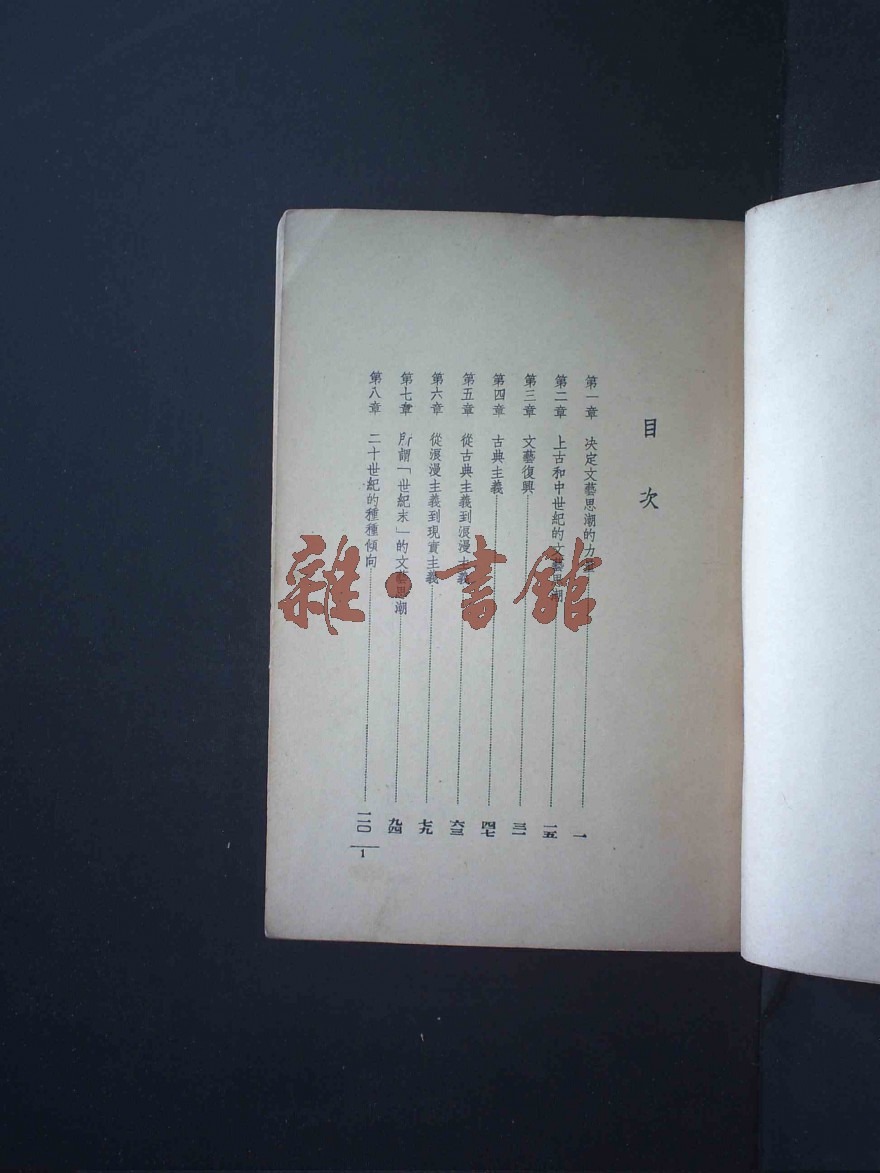 目次
第一章 決定文藝思潮的力量 一
第二章 上古和中世紀的文藝思潮 一五
第三章 文藝復興 三一
第四章 古典主義 四七
第五章 從古典主義到浪漫主義 六三
第六章 從浪漫主義到現實主義 七九
第七章 所謂「世紀末」的文藝思潮 九四
第八章 二十世紀的種種傾向 一一〇
1
雜·書館